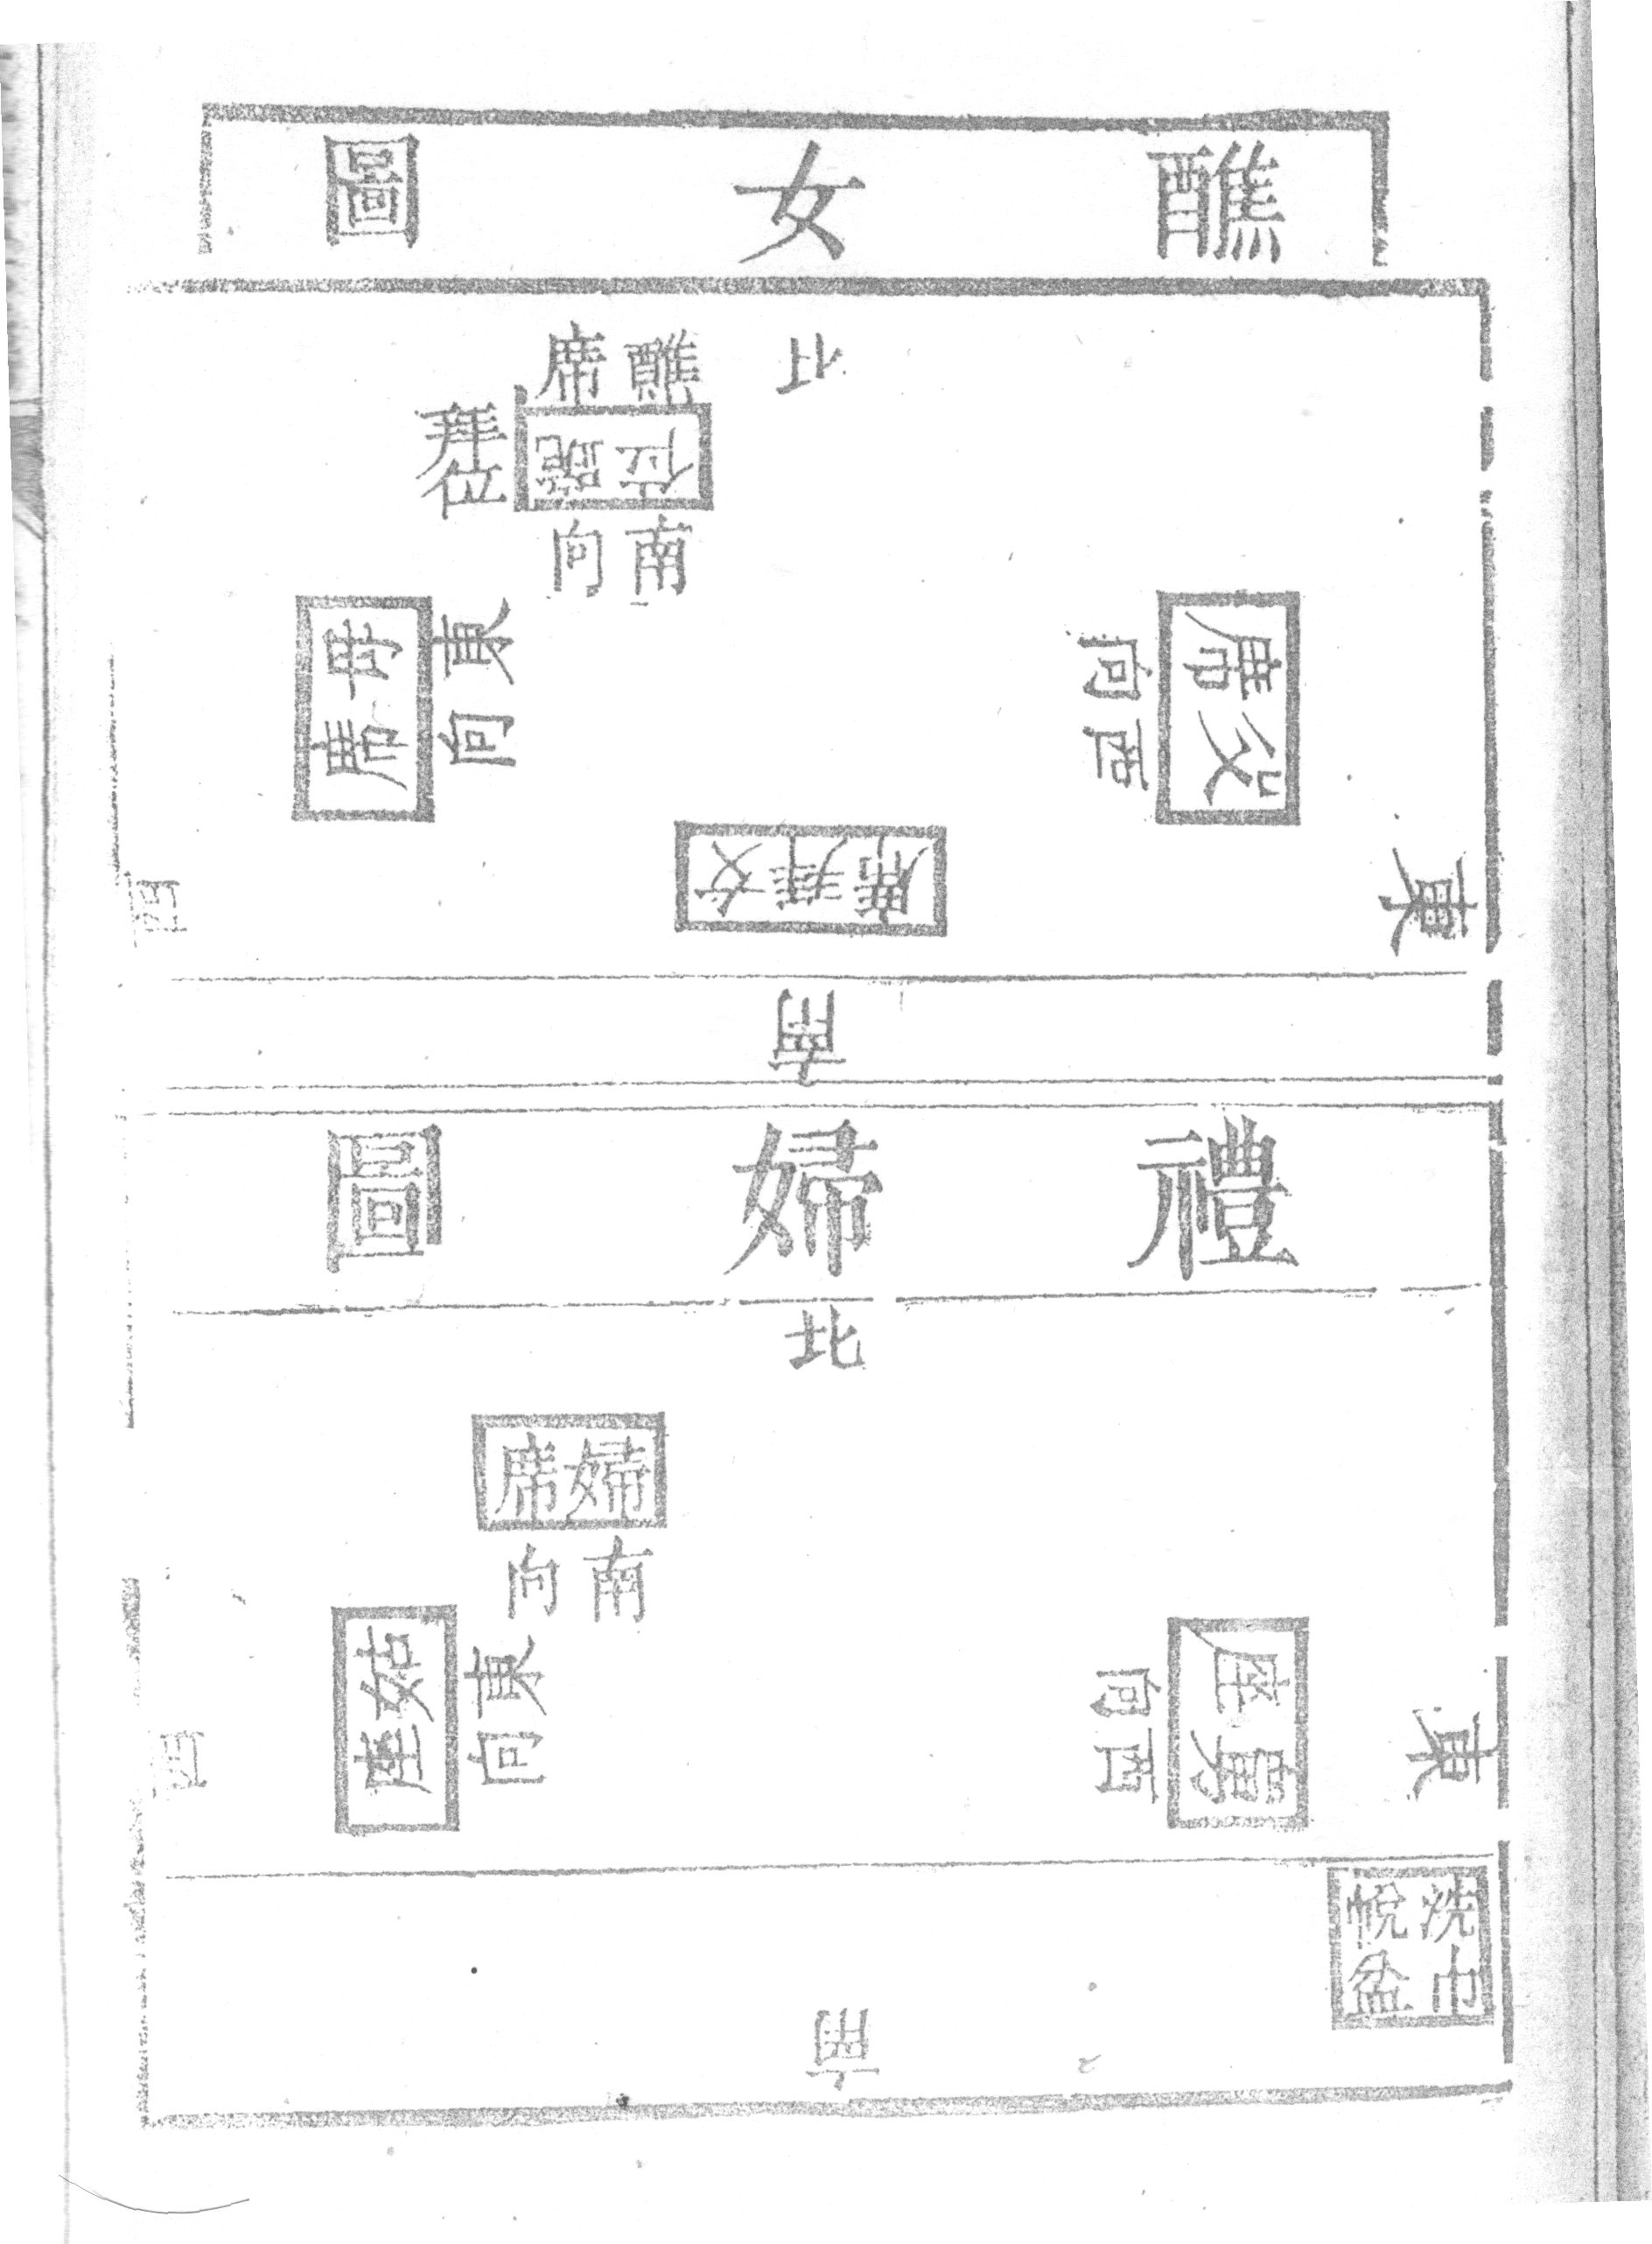 醮女圖
北
醮席
跪位
拜位
南向
父席
西向
母席
東向
女拜席
東
西
南
禮婦圖
北
婦席
南向
舅座
西向
姑座
東向
東
西
洗巾
帨盆
南